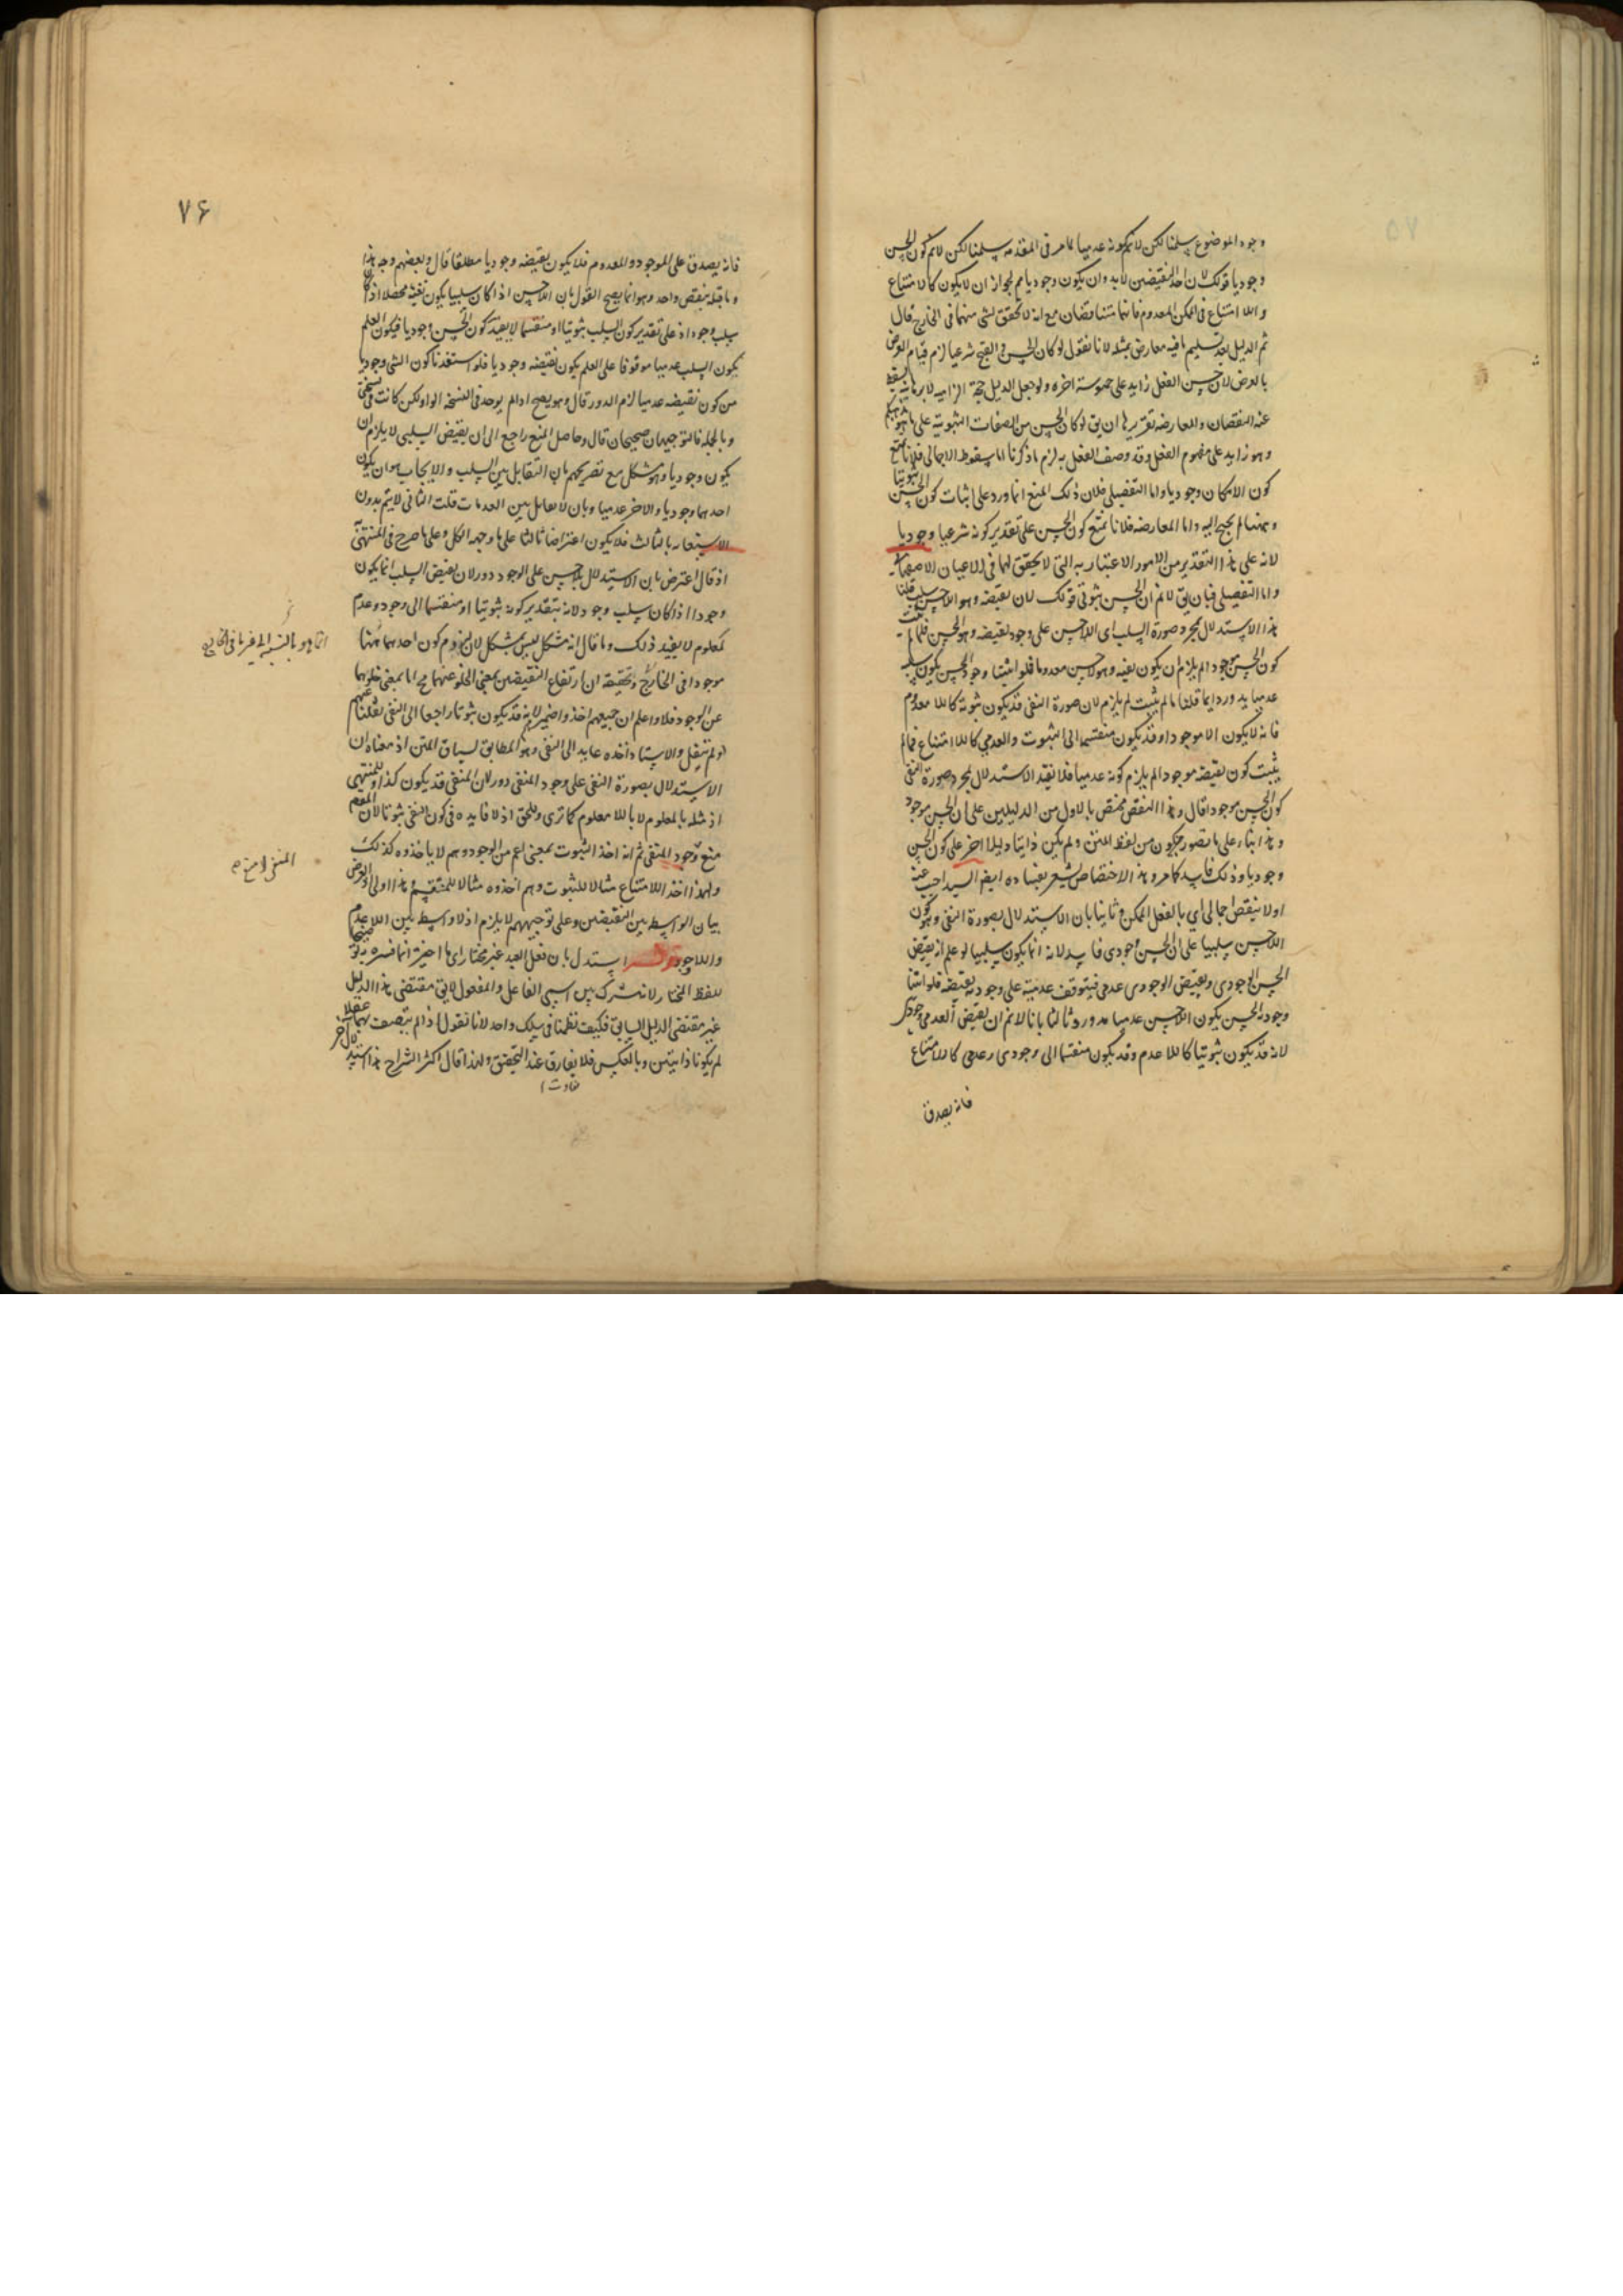 وجود الموضوع سلمنا لكن لانم كونه عدميا لما مر في المقدمه سلمنا لكن لانم كون الحسن
وجوديا قولك لان احد النقيضين لابد وان يكون وجوديا مم لجواز ان لا يكون كالامتناع
واللا امتناع في الممكن المعدوم فانهما متناقضان مع انه لا تحقق لشئ منهما في الخارج قال
ثم الدليل بعد تسليم ما فيه معارض بمثله لانا نقول لو كان الحسن والقبح شرعيا لزم قيام العرض
بالعرض لان حسن الفعل زايد على مفهومه الى اخره ولو جعل الدليل حجة الزاميه لا برهانيه سقط
عنه النقضان والمعارضه تقريرها ان يق لو كان الحسن من الصفات الثبوتية على ما هو مذهبكم
وهو زايد على مفهوم الفعل وقد وصف الفعل به لزم ما ذكرنا اما سقوط الاجمالي فلانا نمنع
كون الامكان وجوديا واما التفصيلي فلان ذلك المنع انما ورد على اثبات كون الحسن ثبوتيا
وههنا لم يحتج اليه واما المعارضه فلانا نمنع كون الحسن على تقدير كونه شرعيا وجوديا
لانه على هذا التقدير من الامور الاعتباريه التي لا تحقق لها في الاعيان الاصفهاني
واما التفصيلي فبان يق لانم ان الحسن ثبوتي قولك لان نقيضه وهو اللاحسن سلب قلنا
هذا الاستدلال بمجرد صورة السلب اى اللاحسن على وجود نقيضه وهو الحسن فلما لم يثبت
كون الحسن موجودا لم يلزم ان يكون نفيه وهو لاحسن معدوما فلو اثبتنا وجود الحسن بكون سلبه
عدميا يدور وايما قلنا ما لم يثبت لم يلزم لان صورة النفي قد يكون ثبوته كاللا معدوم
فانه لا يكون الا موجودا وقد يكون منقسما الى الثبوت والعدمي كاللا امتناع فما لم
يثبت كون نقيضه موجودا لم يلزم كونه عدميا فلا يفيد الاستدلال بمجرد صورة النفي
كون الحسن موجودا قال وهذا النقض مختص بالاول من الدليلين على ان الحسن موجود
وهذا بناء على ما تصور من لفظ المتن ولم يكن ذاتيا دليلا اخر على كون الحسن
وجوديا وذلك فاسد كما مر وهذا الاختصاص يشعر بفساده ايضا السيد اجيب عنه
اولا بنقض اجمالي اي بالفعل الممكن وثانيا بان الاستدلال بصورة النفي وهو كون
اللاحسن سلبيا على ان الحسن وجودى فاسد لانه انما يكون سلبيا لو علم انه نقيض
الحسن الوجودى ونقيض الوجودى عدمي فيتوقف عدميته على وجود نقيضه فلو اثبتنا
وجودية الحسن بكون اللاحسن عدميا يدور وثالثا بانا لانم ان نقيض العدمي وجودى
لانه قد يكون ثبوتيا كاللاعدم وقد يكون منقسما الى وجودى وعدمي كاللا امتناع
فانه يصدق
٧۶
فانه يصدق على الموجود والمعدوم فلا يكون نقيضه وجوديا مطلقا قال وبعضهم وجه هذا
وما قبله بنقض واحد وهو انما يصح القول بان اللاحسن اذا كان سلبيا يكون نفيه محصلا اذا كان
سلب وجود اذ على تقدير كون السلب ثبوتيا او منقسما لا يفيد كون الحسن وجوديا فيكون العلم
بكون السلب عدميا موقوفا على العلم بكون نقيضه وجوديا فلو استفدنا كون الشئ وجوديا
من كون نقيضه عدميا لزم الدور قال وهو يصح اذا لم يوجد في النسخه الواو لكن كانت في نسختي
وبالجمله فالتوجيهان صحيحان قال وحاصل المنع راجع الى ان نقيض السلبي لا يلزم ان
يكون وجوديا وهو مشكل مع تصريحهم بان التقابل بين السلب والايجاب هو ان يكون
احدهما وجوديا والاخر عدميا وبان لا تقابل بين العدمات قلت الثاني لا يتم بدون
الاستعانه بالثالث فلا يكون اعتراضا ثالثا على ما وجهه الكل وعلى ما صرح في المنتهى
اذ قال اعترض بان الاستدلال بلاحسن على الوجود دور لان نقيض السلب انما يكون
وجودا اذا كان سلب وجود لانه بتقدير كونه ثبوتيا او منقسما الى وجود وعدم
كمعلوم لا يفيد ذلك وما قال انه مشكل ليس بمشكل لان لزوم كون احدهما مثبتا
انما هو بالنسبة الى غير ما في الخارج
موجودا في الخارج وتحقيقه ان ارتفاع النقيضين بمعنى الخلو عنهما مح اما بمعنى خلوهما
عن الوجود فلا واعلم ان جميعهم اخذوا ضمير لانه قد يكون ثبوتا راجعا الى النفي نقلنا عنهم
او لم ننقل والاستاد اخذه عايد الى النفي وهو المطابق لسياق المتن اذ معناه ان
الاستدلال بصورة النفي على وجود المنفي دور لان المنفي قد يكون كذا وللمنتهى
اذ مثله بالمعلوم لا باللا معلوم كما ترى وللحق اذ لا فايده في كون النفي ثبوتا لان المقصود
منع وجود المنفي ثم انه اخذ الثبوت بمعنى اعم من الوجود وهم لا ياخذوه كذلك
المنفي لا منع
ولهذا اخذ اللا امتناع مثالا للثبوت وهم اخذوه مثالا للمنقسم وهذا اولى اذ الغرض
بيان الواسط بين النقيضين وعلى توجيههم لا يلزم اذ لا واسط بين اللاعدم
واللاوجود استدل بان فعل العبد غير مختار اى ما اخيرة انما فسره
لفظ المختار لانه مشترك بين اسمي الفاعل والمفعول لا يق مقتضى هذا الدليل
غير مقتضى الدليل السابق فكيف نظمتا في سلك واحد لانا نقول اذا لم يتصف بهما عقلا
لم يكونا ذاتيتين وبالعكس فلا يفارق عند التحقيق ولهذا قال اكثر الشراح هذا استدلال اخر
تفاوت